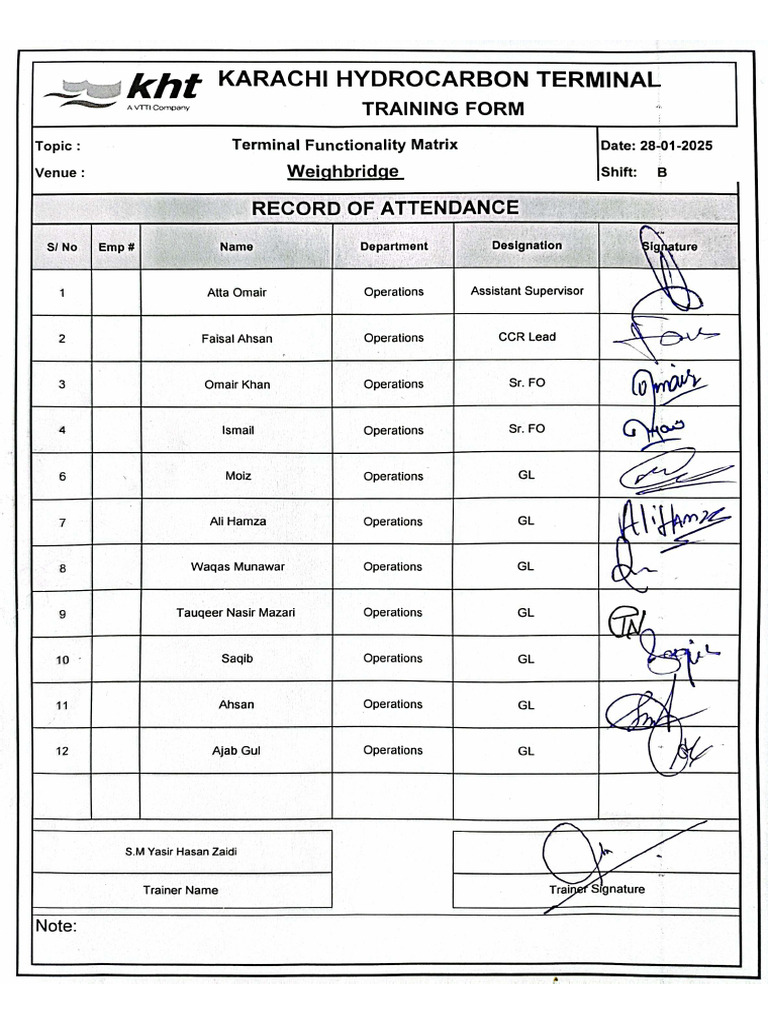 kht
A VTTI Company
KARACHI HYDROCARBON TERMINAL
TRAINING FORM
Topic : Terminal Functionality Matrix Date: 28-01-2025
Venue : Weighbridge Shift: B
RECORD OF ATTENDANCE
S/ No Emp # Name Department Designation Signature
1 Atta Omair Operations Assistant Supervisor
2 Faisal Ahsan Operations CCR Lead
3 Omair Khan Operations Sr. FO Omair
4 Ismail Operations Sr. FO
6 Moiz Operations GL
7 Ali Hamza Operations GL AliHamza
8 Waqas Munawar Operations GL
9 Tauqeer Nasir Mazari Operations GL TN
10 Saqib Operations GL
11 Ahsan Operations GL
12 Ajab Gul Operations GL
S.M Yasir Hasan Zaidi
Trainer Name Trainer Signature
Note: